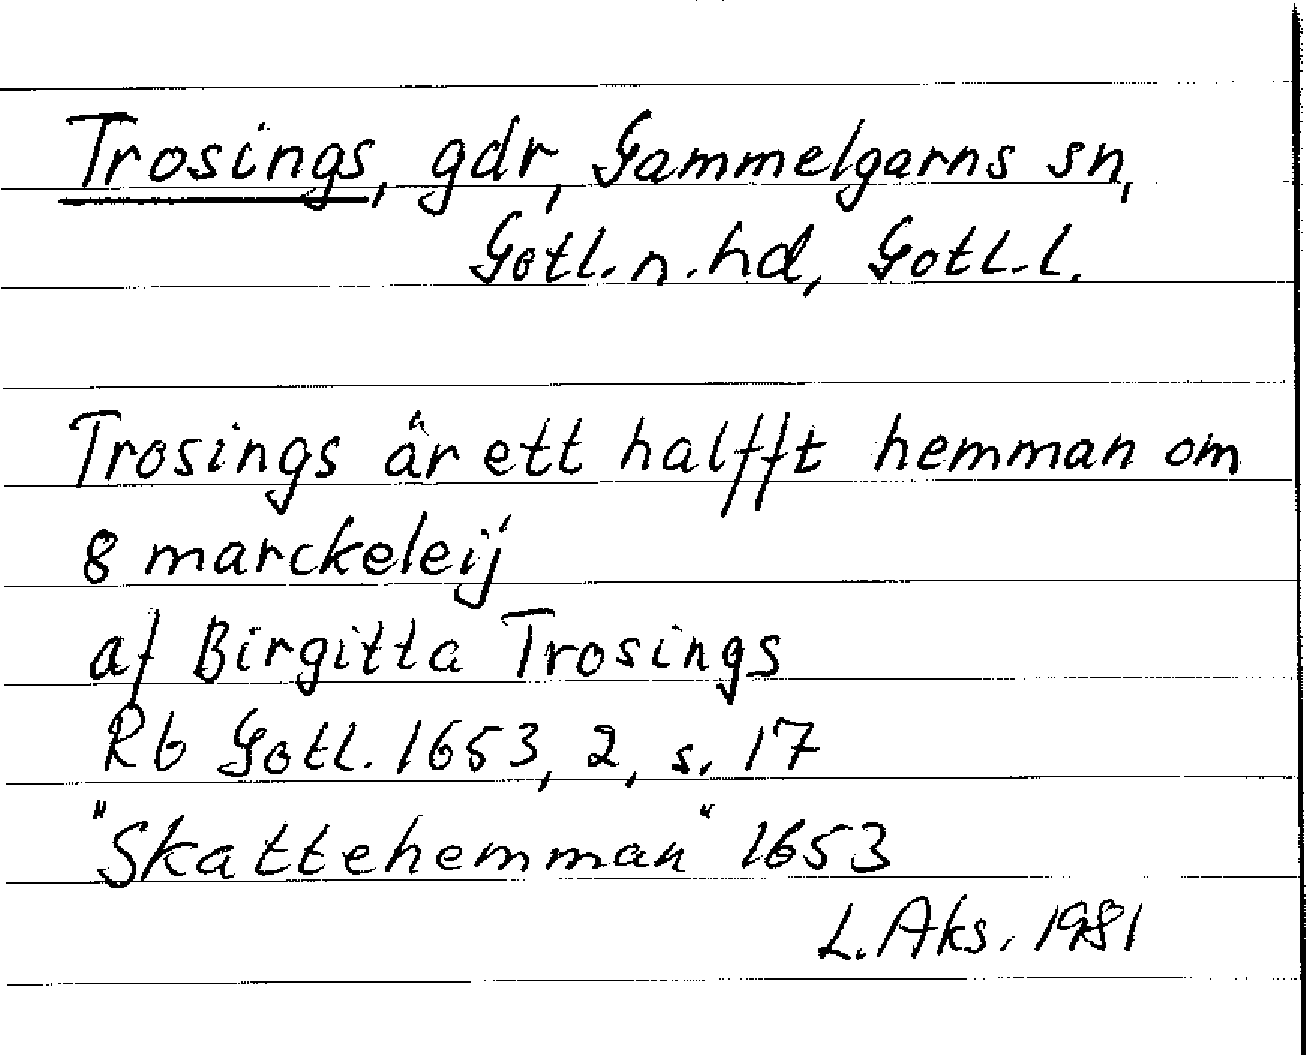 Trosings, gdr, Gammelgarns sn,
Gotl. n. hd, Gotl. l.
Trosings är ett halfft hemman om
8 marckeleij
af Birgitta Trosings
Rb Gotl. 1653, 2, s. 17
"Skattehemman" 1653
L. Aks. 1981